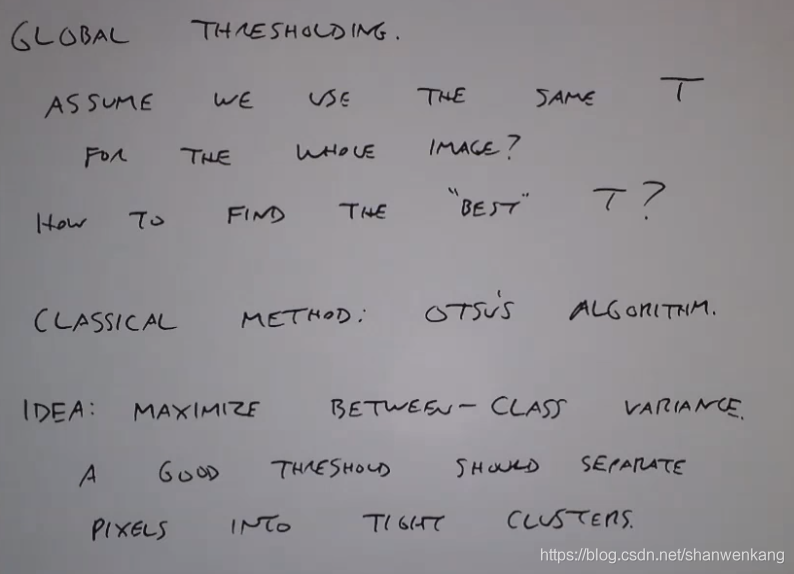 GLOBAL THRESHOLDING.
ASSUME WE USE THE SAME T
FOR THE WHOLE IMAGE?
HOW TO FIND THE "BEST" T?
CLASSICAL METHOD: OTSU'S ALGORITHM.
IDEA: MAXIMIZE BETWEEN-CLASS VARIANCE.
A GOOD THRESHOLD SHOULD SEPARATE
PIXELS INTO TIGHT CLUSTERS.
https://blog.csdn.net/shanwenkang